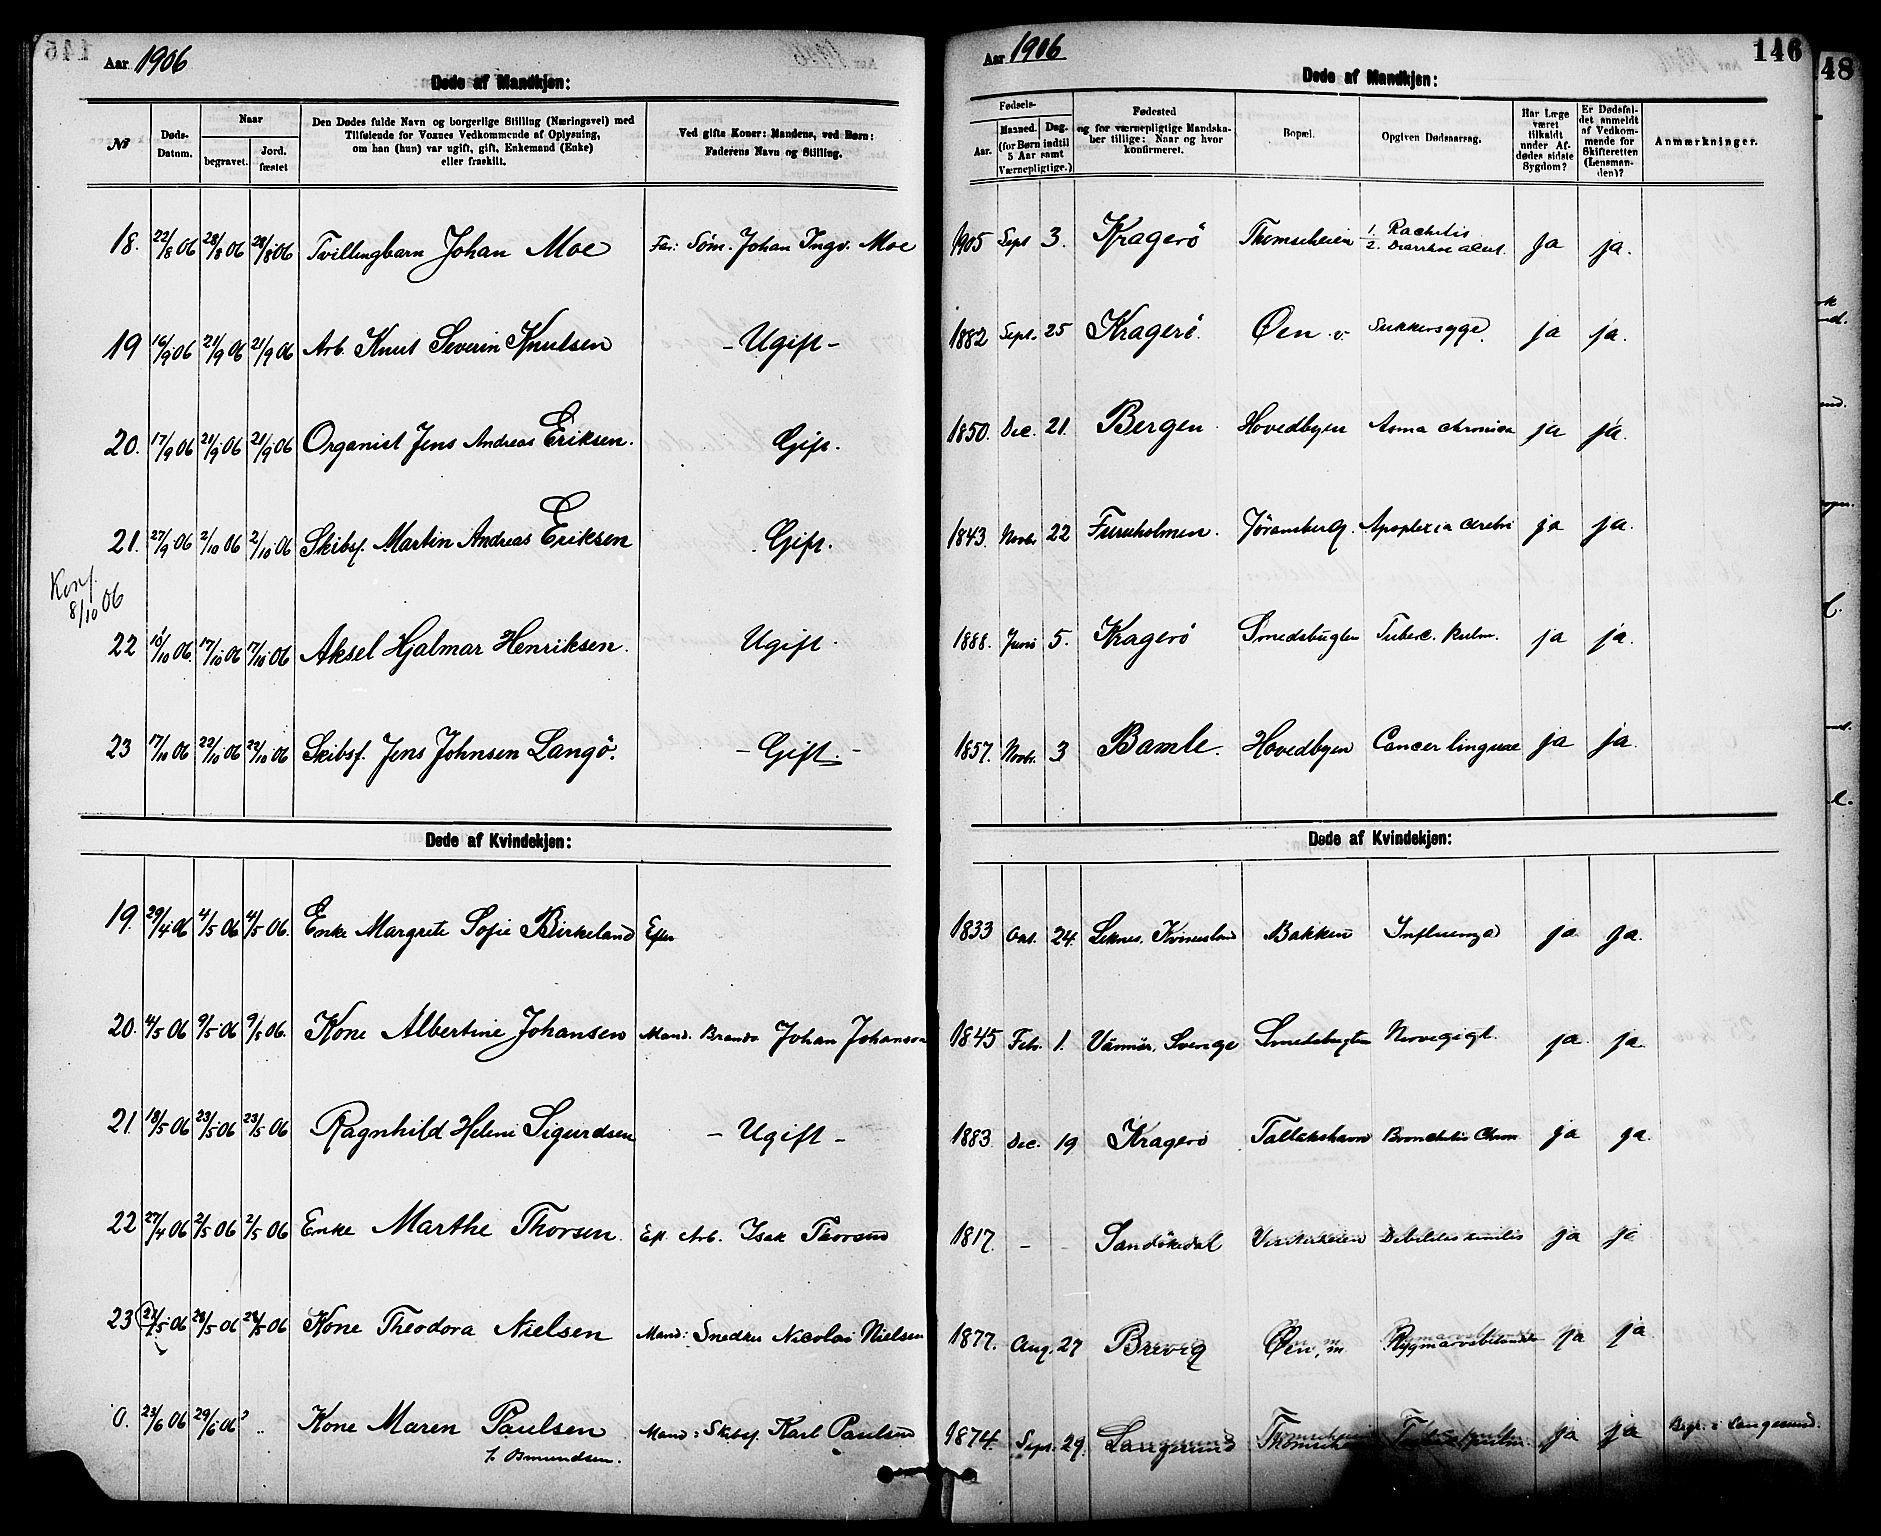 Aar 1906
Døde af Mandkjøn:
№
Døds-Datum.
Naar
begravet.
Jord.fæstet
Den Dødes fulde Navn og borgerlige Stilling (Næringsvei) med
Tilføiende for Voxnes Vedkommende af Oplysning,
om han (hun) var ugift, gift, Enkemand (Enke)
eller fraskilt.
Ved gifte Koner: Mandens, ved Børn:
Faderens Navn og Stilling.
18. 22/8 06 28/8 06 28/8 06 Tvillingbarn Johan Moe Far: Søm. Johan Ingv. Moe
19 16/9 06 21/9 06 21/9 06 Arb. Knut Severin Knutsen – Ugift –
20. 17/9 06 21/9 06 21/9 06 Organist Jens Andreas Eriksen. Gift.
21. 27/9 06 2/10 06 2/10 06 Skibsf. Martin Andreas Eriksen Gift.
Konf. 8/10 06
22 /10 06. 17/10 06 17/10 06 Aksel Hjalmar Henriksen. Ugift.
23 17/10 06 22/10 06 22/10 06 Skibsf. Jens Johnsen Langö. – Gift. –
Døde af Kvindekjøn:
19. 29/4 06 4/5 06 4/5 06. Enke Margrete Sofie Birkeland Efter
20. 4/5 06 9/5 06 9/5 06. Kone Albertine Johansen Mand. Johan Johanson
21. 18/5 06 23/5 06 23/5 06 Ragnhild Helene Sigurdsen – Ugift –
22 27/4 06 2/5 06 2/5 06 Enke Marthe Thorsen. Eft. Arb. Isak Thorsen
23 /5 06 28/5 06 28/5 06 Kone Theodora Nielsen Mand: Snedker Nicolai Nielsen
0. 23/6 06 29/6 06 Kone Maren Paulsen Mand: Skibsf. Karl Paulsen
f. Osmundsen.
Aar 1906
146
48
Døde af Mandkjøn:
Fødsels-
Aar.
Maaned. Dag.
(for Børn indtil
5 Aar samt
Værnepligtige.)
Fødested
og for værnepligtige Mandska-
ber tillige: Naar og hvor
konfirmeret.
Bopæl.
Opgiven Dødsaarsag.
Har Læge
været
tilkaldt
under Af-
dødes sidste
Sygdom?
Er Dødsfal-
det anmeldt
af Vedkom-
mende for
Skifteretten
(Lensman-
den)?
Anmærkninger.
1905 Sept 3. Kragerö Thomseheien 1. Rachitis
2. Diarrhoe acut. ja ja.
1882 Sept. 25 Kragerö. Øen v. Sukkersyge. ja ja.
1850. Dec. 21. Bergen Hovedbyen Asma chronica ja ja.
1843. Novbr 22 Furuholmen. Jøransberg. Apoplexia cerebri ja ja.
1888. Juni 5. Kragerö Smedsbugten Tuberc. Pulm. ja ja.
1857. Novbr. 3 Bamle. Hovedbyen Cancer linguae ja ja.
Døde af Kvindekjøn:
1833 Oct. 24. Bakken Influenza ja ja.
1845 Feb. 1. Sverige Smedsbugten Nervegigt. ja ja
1883 Dec. 19 Kragerö Tallakshavn Bronchitis Chron ja ja.
1817. – – Sandökedal Debilitas senilis ja ja
1877. Aug. 27 Brevig Øen, m. ja ja
1874. Sept. 29. Langesund Thomseheien ja ja Begr. i Langesund.